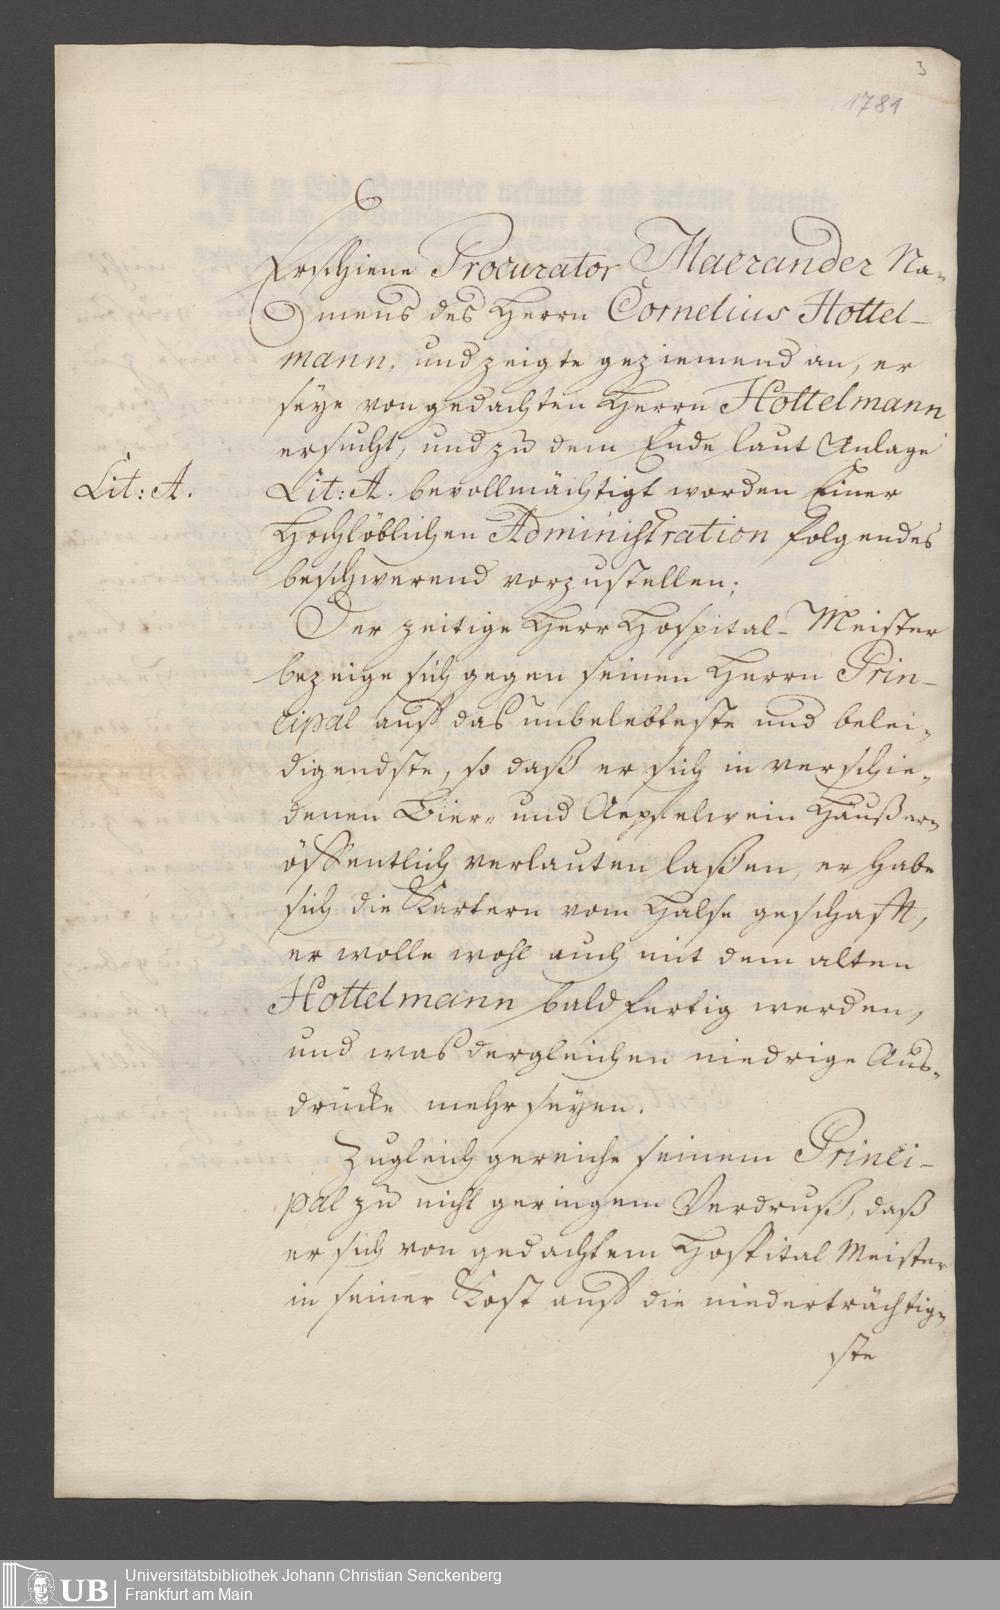 3
1781
Erschiene Procurator Maerander Na-
mens des Herrn Cornelius Hottel-
mann. und zeigte geziemend an, er
seye von gedachten Herrn Hottelmann
ersucht, und zu dem Ende laut Anlage
Lit: A.
Lit: A. bevollmächtigt worden Einer
Hochlöblichen Administration folgendes
beschwerend vorzustellen;
Der zeitige Herr Hospital-Meister
bezeige sich gegen seinen Herrn Prin-
cipal auf das unbelebteste und belei-
digendste, so daß er sich in verschie-
denen Bier- und Aepfelwein Häußern
öffentlich verlauten laßen, er habe
sich die Kartern vom Halse geschafft,
er wolle wohl auch mit dem alten
Hottelmann bald fertig werden,
und was dergleichen niedrige Aus-
drücke mehr seyen.
Zugleich gereiche seinem Princi-
pal zu nicht geringem Verdruß, daß
er sich von gedachtem Hospital Meister
in seiner Kost auf die niederträchtig-
ste
UB
Universitätsbibliothek Johann Christian Senckenberg
Frankfurt am Main